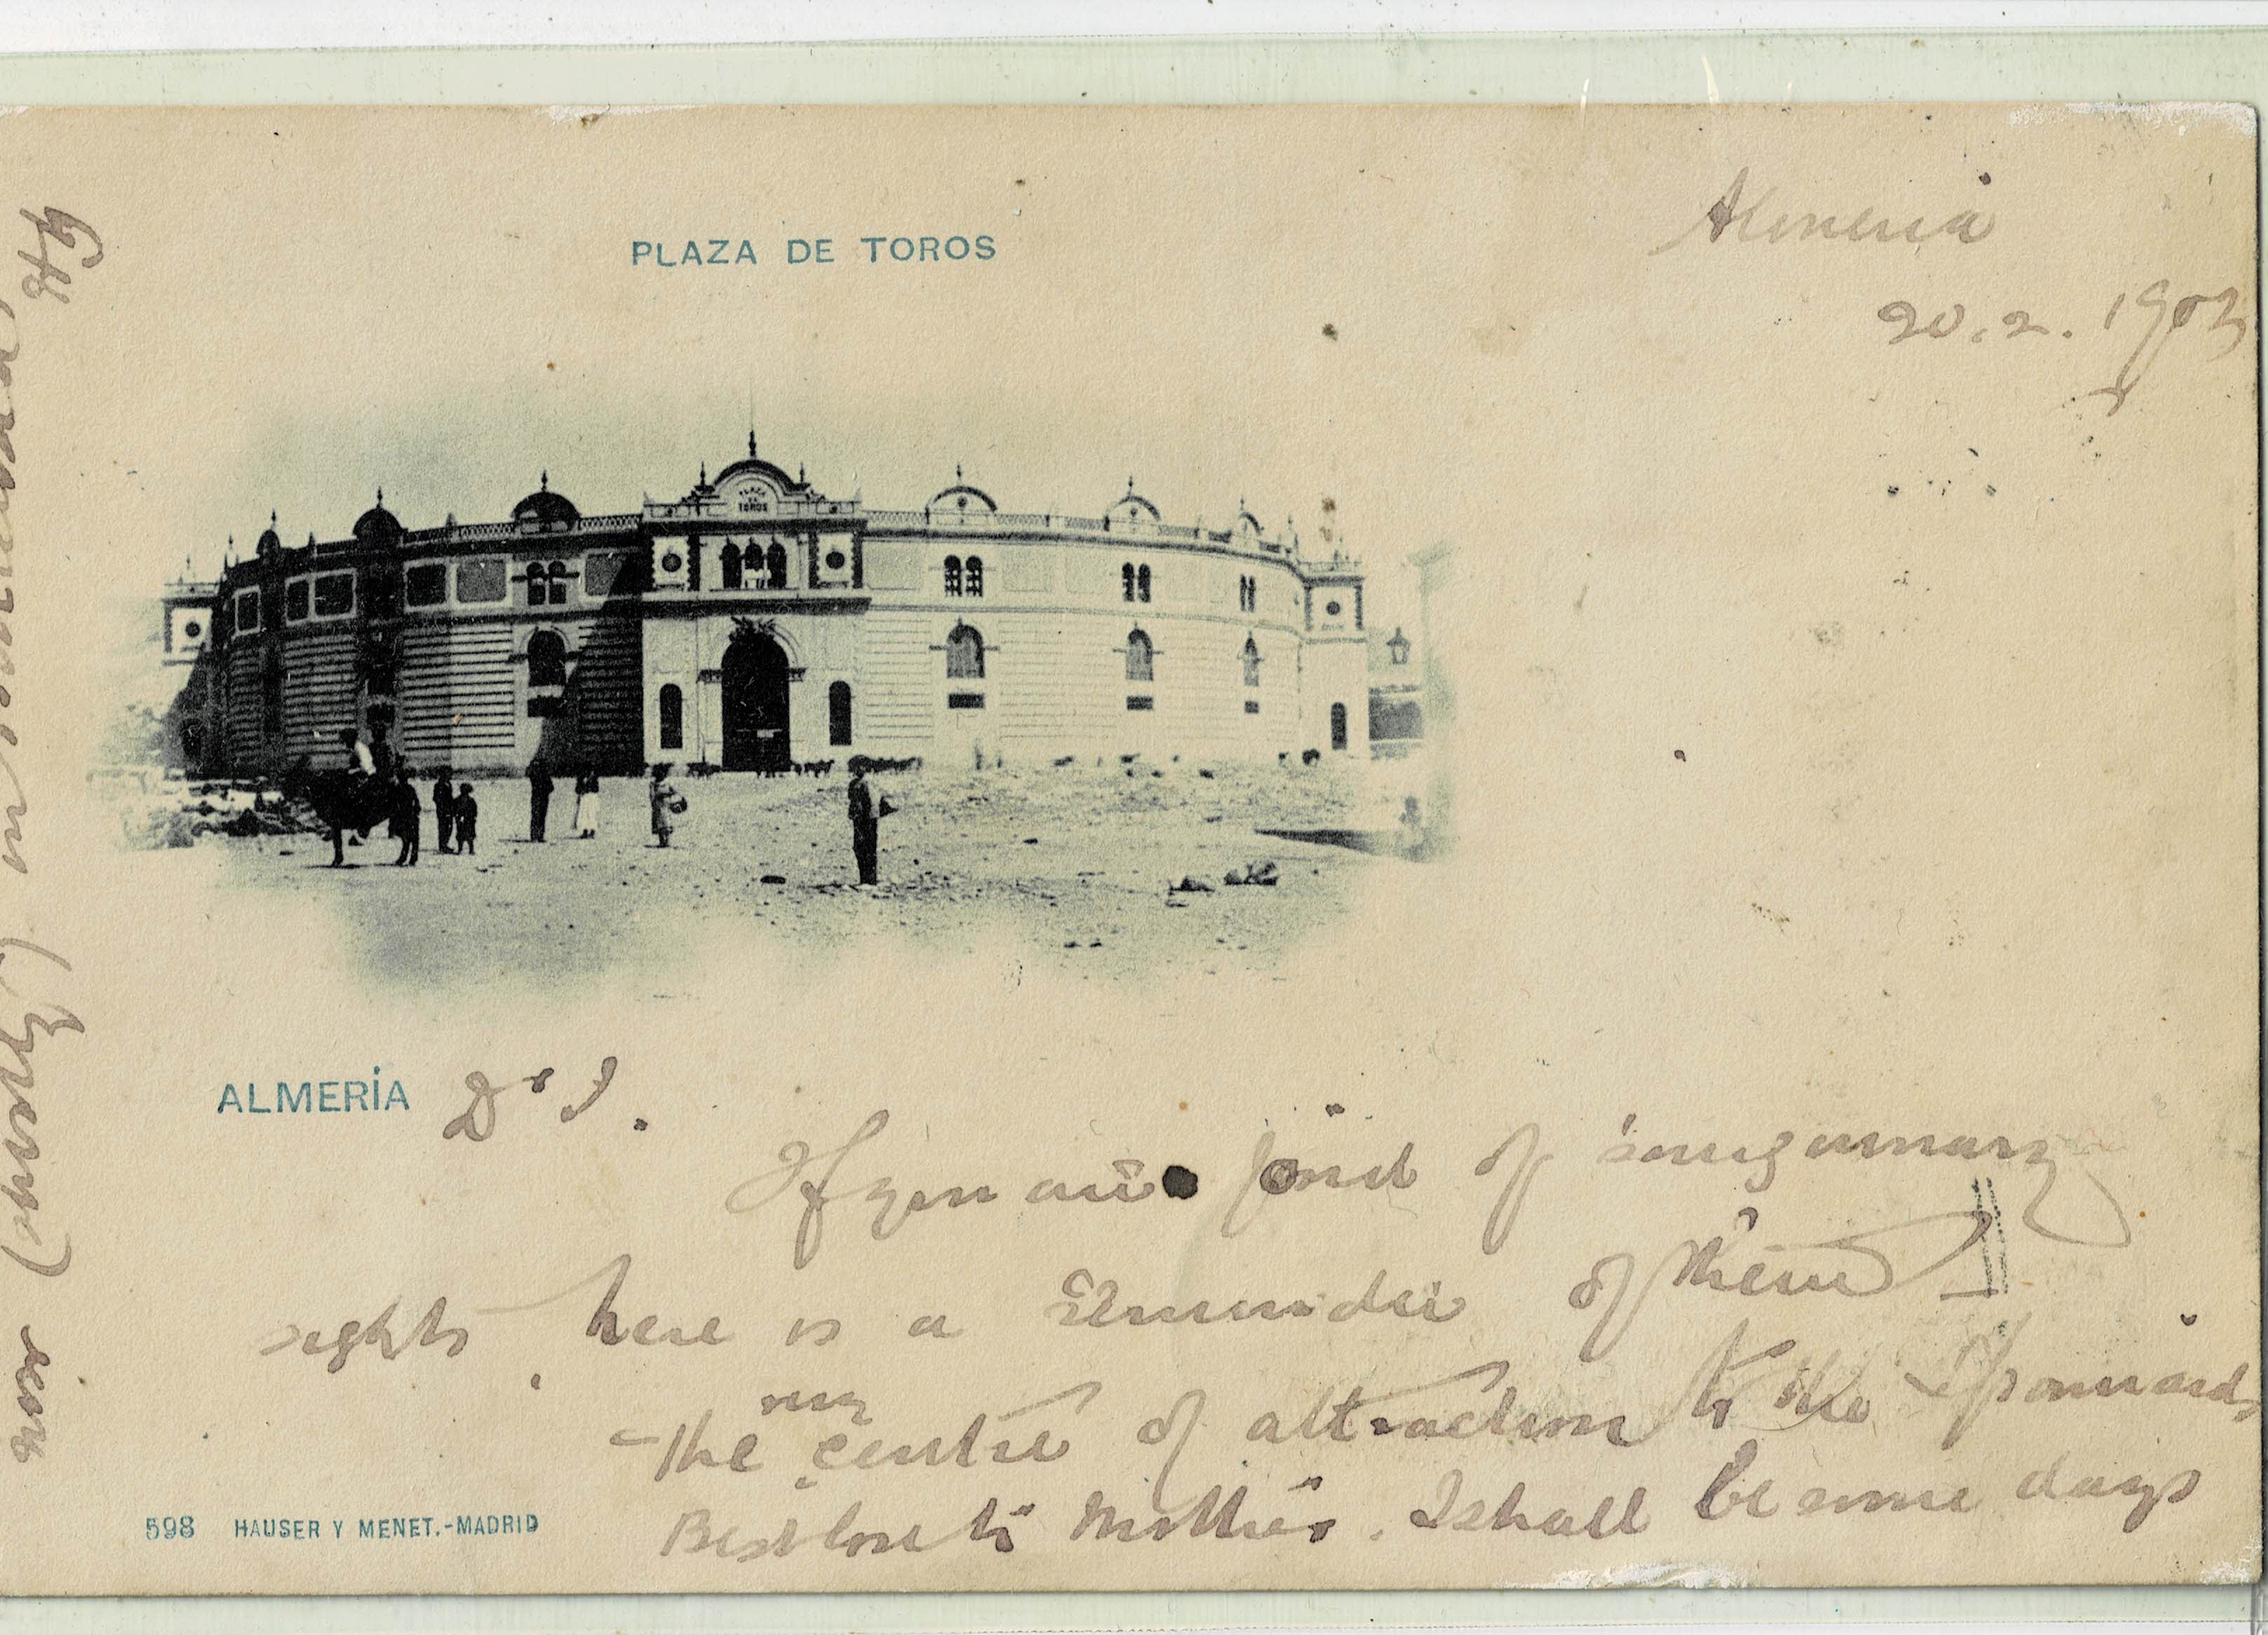 PLAZA DE TOROS
Almeria
20.2.1903
PLAZA
DE
TOROS
ALMERÍA
Dr J.
If you are fond of sanguinary
sights, here is a reminder of them
very
- the centre of attraction to the Spaniards
Best love to Mother. I shall be some days
now (chiefly) in
598 HAUSER Y MENET.-MADRID